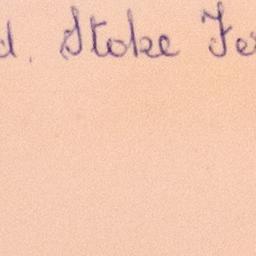 d. Stoke Fe